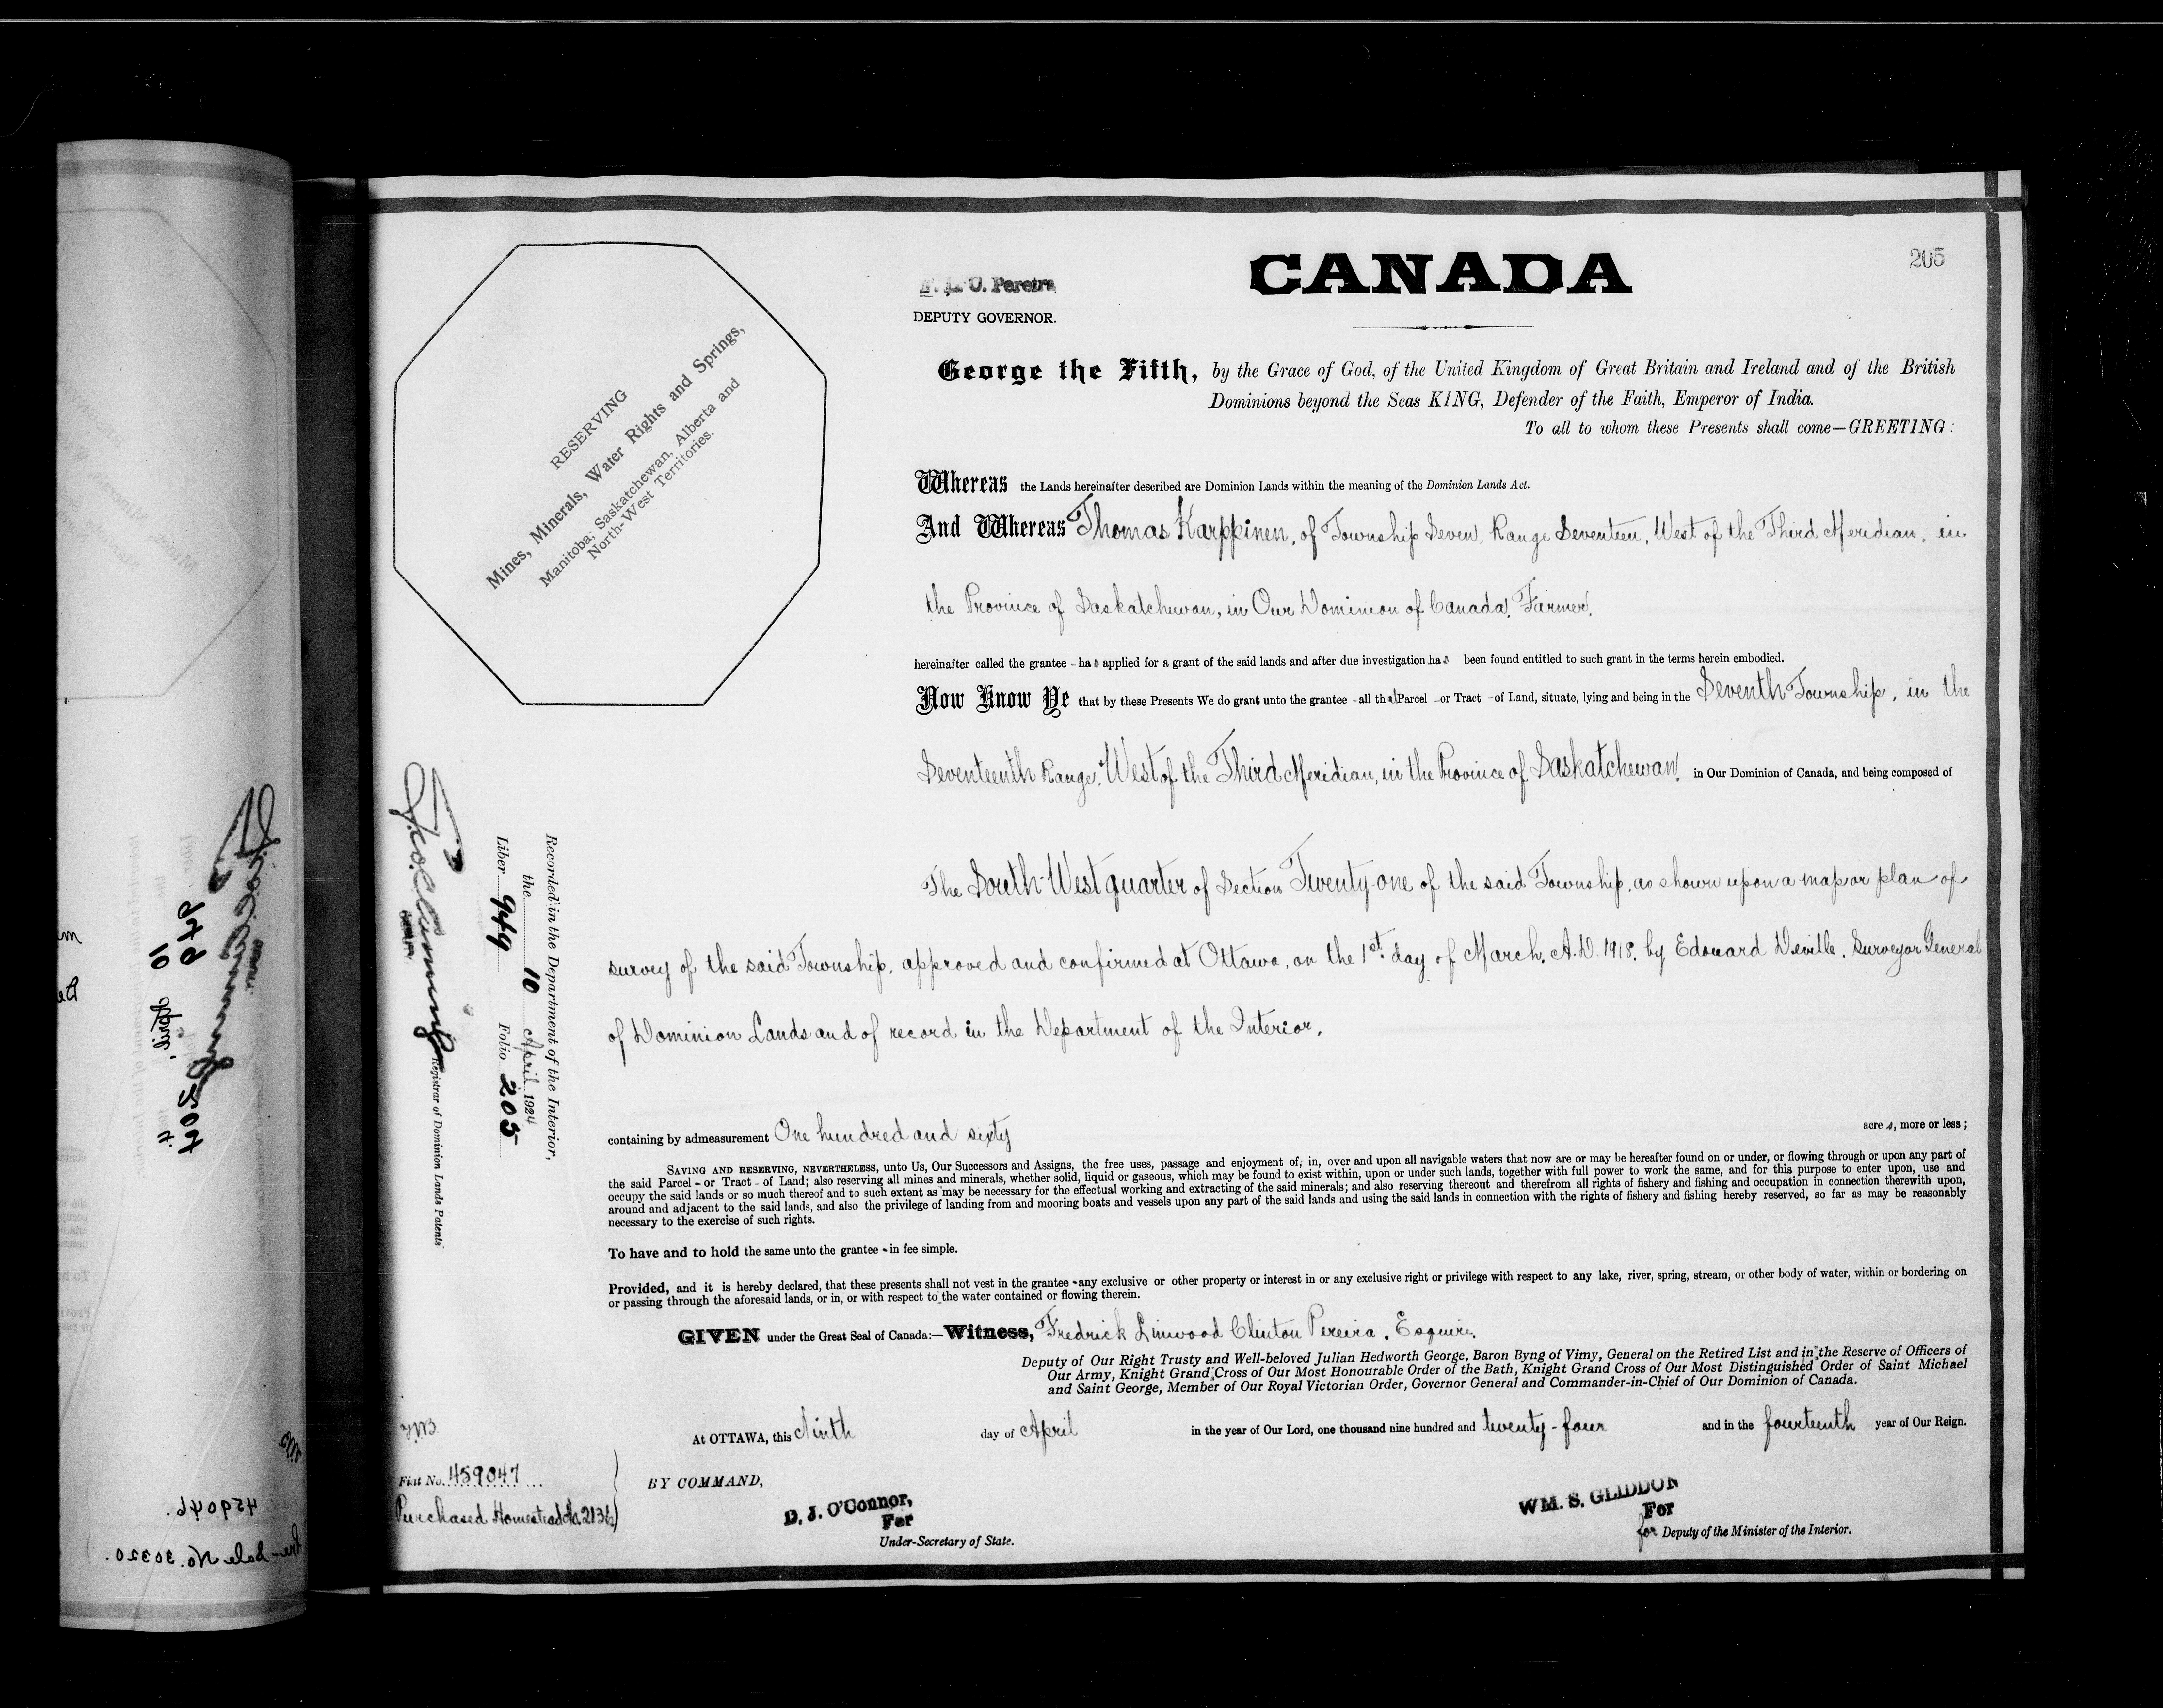 205
CANADA
F. L. C. Pereira
DEPUTY GOVERNOR.
RESERVING
Mines, Minerals, Water Rights and Springs,
Manitoba; Saskatchewan, Alberta and
North-West Territories.
George the Fifth, by the Grace of God, of the United Kingdom of Great Britain and Ireland and of the British
Dominions beyond the Seas KING, Defender of the Faith, Emperor of India.
To all to whom these Presents shall come—GREETING:
Whereas the Lands hereinafter described are Dominion Lands within the meaning of the Dominion Lands Act.
And Whereas Thomas Karppinen, of Township Seven, Range Seventeen, West of the Third Meridian, in
the Province of Saskatchewan, in Our Dominion of Canada, Farmer,
hereinafter called the grantee - has applied for a grant of the said lands and after due investigation has been found entitled to such grant in the terms herein embodied.
Now Know Ye that by these Presents We do grant unto the grantee - all that Parcel - or Tract - of Land, situate, lying and being in the Seventh Township, in the
Seventeenth Range, West of the Third Meridian, in the Province of Saskatchewan, in Our Dominion of Canada, and being composed of
The South-West quarter of Section Twenty-one of the said Township, as shown upon a map or plan of
survey of the said Township, approved and confirmed at Ottawa, on the 1st. day of March, A.D. 1918, by Edouard Deville, Surveyor General
of Dominion Lands and of record in the Department of the Interior,
containing by admeasurement One hundred and sixty acres, more or less;
SAVING AND RESERVING, NEVERTHELESS, unto Us, Our Successors and Assigns, the free uses, passage and enjoyment of, in, over and upon all navigable waters that now are or may be hereafter found on or under, or flowing through or upon any part of
the said Parcel - or Tract - of Land; also reserving all mines and minerals, whether solid, liquid or gaseous, which may be found to exist within, upon or under such lands, together with full power to work the same, and for this purpose to enter upon, use and
occupy the said lands or so much thereof and to such extent as may be necessary for the effectual working and extracting of the said minerals; and also reserving thereout and therefrom all rights of fishery and fishing and occupation in connection therewith upon,
around and adjacent to the said lands, and also the privilege of landing from and mooring boats and vessels upon any part of the said lands and using the said lands in connection with the rights of fishery and fishing hereby reserved, so far as may be reasonably
necessary to the exercise of such rights.
To have and to hold the same unto the grantee - in fee simple.
Provided, and it is hereby declared, that these presents shall not vest in the grantee - any exclusive or other property or interest in or any exclusive right or privilege with respect to any lake, river, spring, stream, or other body of water, within or bordering on
or passing through the aforesaid lands, or in, or with respect to the water contained or flowing therein.
GIVEN under the Great Seal of Canada:—Witness, Fredrick Linwood Clinton Pereira, Esquire,
Deputy of Our Right Trusty and Well-beloved Julian Hedworth George, Baron Byng of Vimy, General on the Retired List and in the Reserve of Officers of
Our Army, Knight Grand Cross of Our Most Honourable Order of the Bath, Knight Grand Cross of Our Most Distinguished Order of Saint Michael
and Saint George, Member of Our Royal Victorian Order, Governor General and Commander-in-Chief of Our Dominion of Canada.
At OTTAWA, this Ninth day of April in the year of Our Lord, one thousand nine hundred and twenty-four and in the fourteenth year of Our Reign.
BY COMMAND,
D. J. O'Connor,
For
Under-Secretary of State.
WM. S. GLIDDON
For
for Deputy of the Minister of the Interior.
Recorded in the Department of the Interior,
the 10 April 1924
Liber 949 Folio 205
Registrar of Dominion Lands Patents
Fiat No. 459047
Purchased Homestead No. 2136
459046.
Pre-Sale No. 30320.